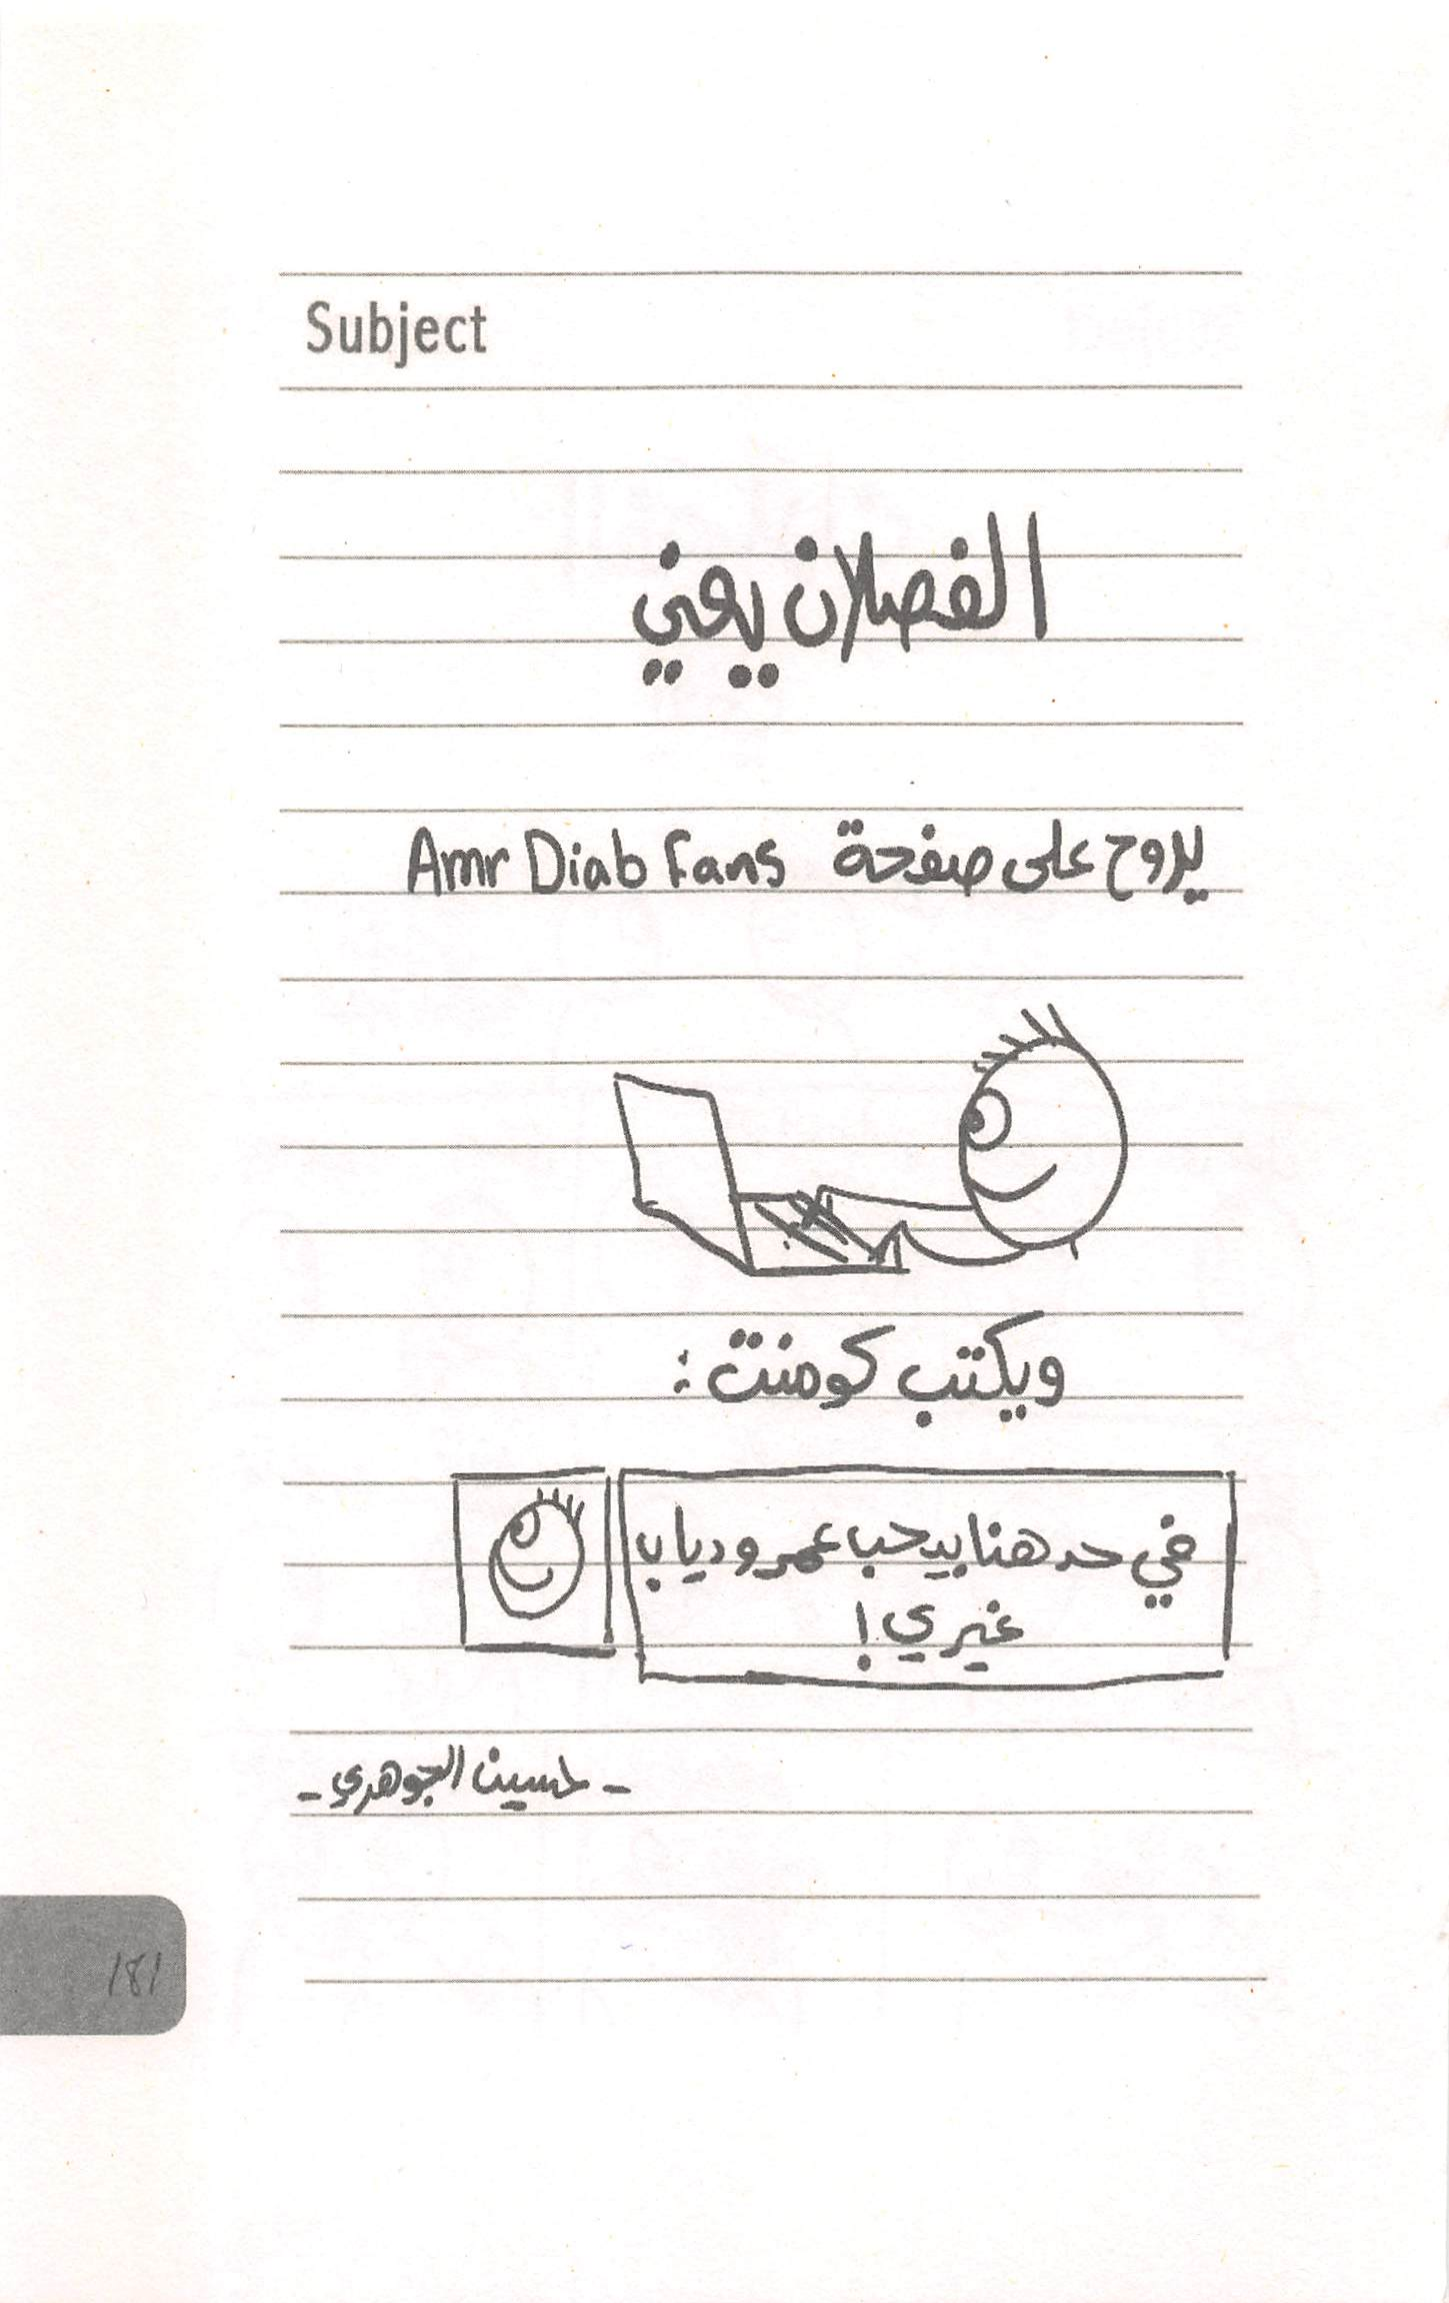 Subject
الفصلان يعني
يروح على صفحة Amr Diab Fans
ويكتب كومنت :
في حد هنا بيحب عمرو دياب
غيري !
- حسين الجوهري -
181